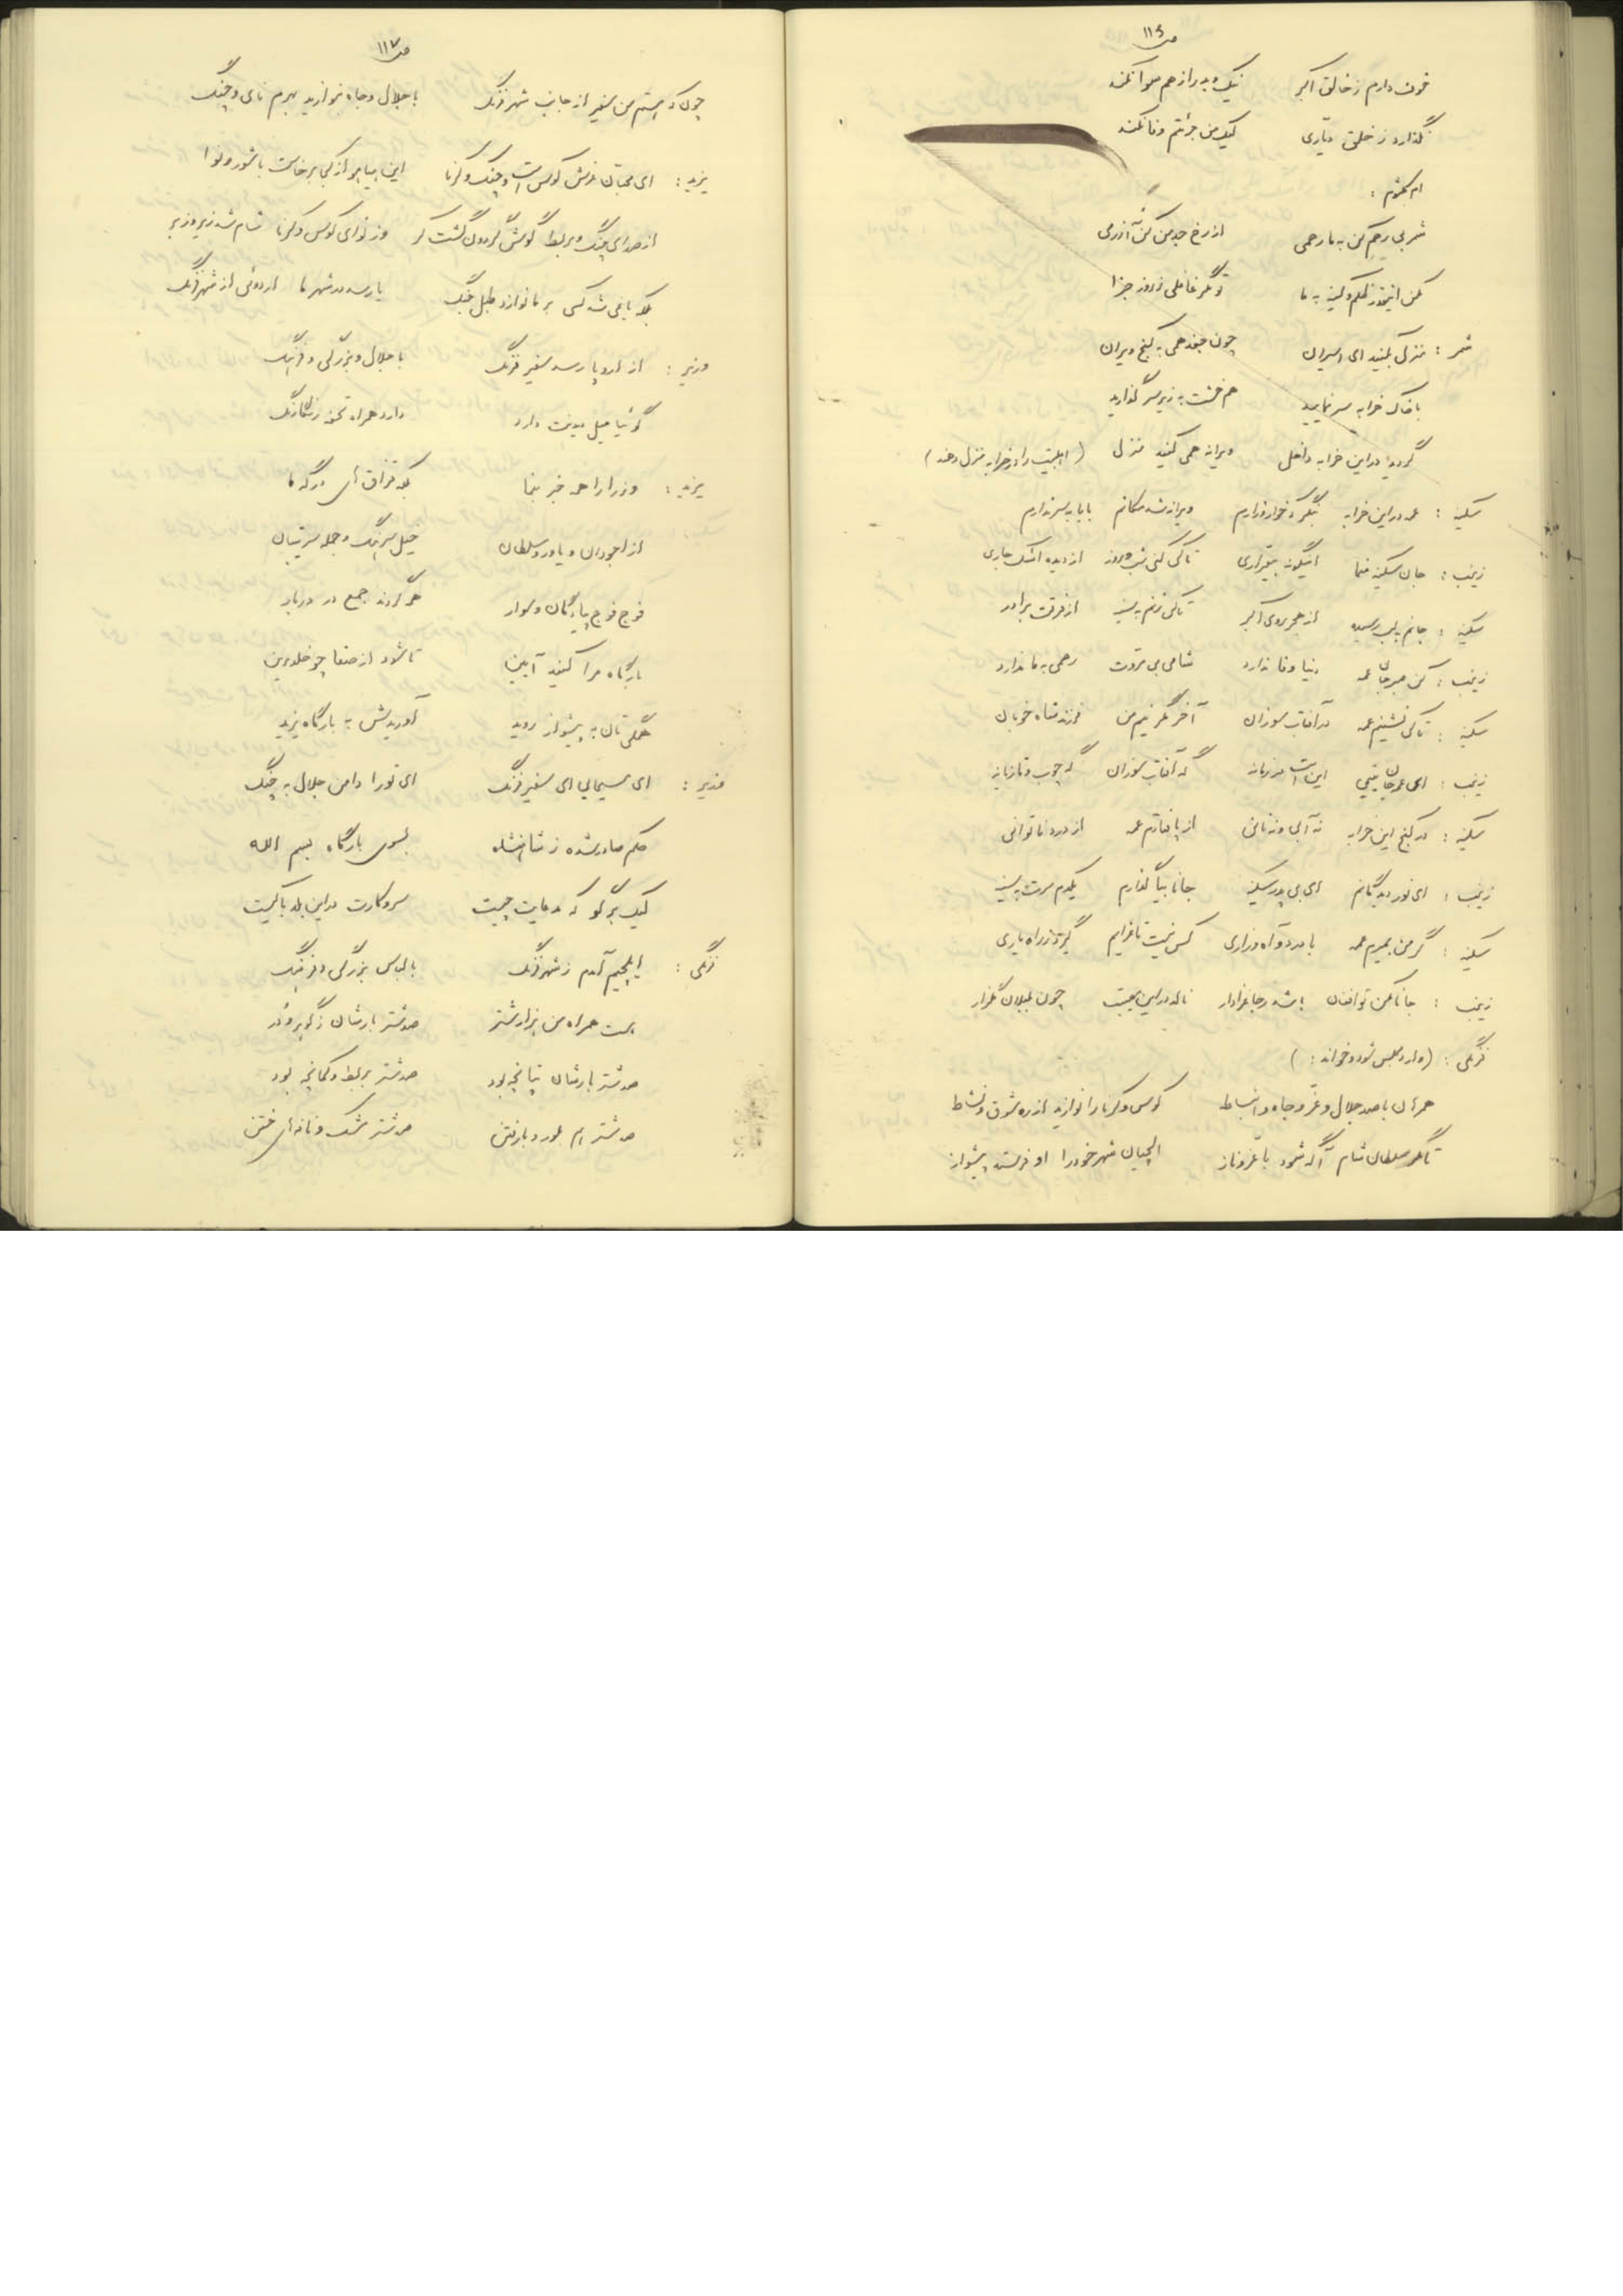 ص ۱۱۶
خوف دارم ز خالق اکبر نیک و بد را ز هم سوا نکند
نگذارد ز خلق دیاری لیک من جرئتم وفا نکند
ام کلثوم :
شمر بی رحم کن به ما رحمی از رخ جد من کن آزرمی
مکن اینقدر ظلم و کینه به ما تو مگر غافلی ز روز جزا
شمر : منزل بکنید ای اسیران چون جغد همی به کنج ویران
با خاک خرابه سر نمایید هم خشت به زیر سر گذارید
گردید در این خرابه داخل ویرانه همی کنید منزل (اهلبیت را در خرابه منزل دهند)
سکینه : عمه در این خرابه بنگر که خوار و زارم ویرانه شد مکانم بابا به سر ندارم
زینب : جان سکینه منما اینگونه بیقراری تا کی کنی شب و روز از دیده اشک جاری
سکینه : جانم به لب رسیده از هجر روی اکبر تا کی زنم به سینه از فرقت برادر
زینب : کن صبر جان عمه دنیا وفا ندارد شامی بی مروت رحمی به ما ندارد
سکینه : تا کی نشینم عمه در آفتاب سوزان آخر مگر نیم من فرزند شاه خوبان
زینب : ای عمه جان یتیمی این است در زمانه گه آفتاب سوزان گه چوب و تازیانه
سکینه : در کنج این خرابه نه آبی و نه نانی از پا فتادم عمه از درد ناتوانی
زینب : ای نور دیدگانم ای بی پدر سکینه جانا بیا گذارم یکدم سرت به سینه
سکینه : گر من بمیرم عمه با درد و آه و زاری کس نیست تا عزایم گیرد ز راه یاری
زینب : جانا مکن تو افغان باشد رجا عزادار ناله در این مصیبت چون بلبلان گلزار
فرنگی : (وارد مجلس شود و خواند :)
همرهان با صد جلال و عز و جاه و انبساط کوس و کرنا را نوازید از ره شوق و نشاط
تا مگر سلطان شام آگه شود با عز و ناز ایلچیان شهر خود را او فرستد پیشواز
ص ۱۱۷
چون که هستم من سفیر از جانب شهر فرنگ با جلال و جاه بنوازید بهرم نای و چنگ
یزید : ای محبان غرش کوس است و چنگ و کرنا این هیاهو از کجا برخاست با شور و نوا
از صدای چنگ و بربط گوش گردون گشت کر وز نوای کوس و کرنا شام شد زیر و زبر
بلکه یاغی شد کسی بر ما نوازد طبل جنگ یا رسد در شهر ما اردوئی از شهر فرنگ
وزیر : از اروپا رسد سفیر فرنگ با جلال و بزرگی و فرهنگ
گوئیا میل دیدنت دارد دارد همراه تحفه رنگارنگ
یزید : وزرا را همه خبر بنما بلکه قزاق های درگه ما
از اجودان و یاور و سلطان خیل سرهنگ و جمله سرتیپان
فوج فوج پیادگان و سوار همه گردند جمع در دربار
بارگاه مرا کنید آیین تا شود از صفا چو خلد برین
همگی تان به پیشواز روید آوریدش به بارگاه یزید
وزیر : ای مسیحایی ای سفیر فرنگ ای تو را دامن جلال به چنگ
حکم صادر شده ز شاهنشاه بسوی بارگاه بسم الله
لیک برگو که مدعایت چیست سر و کارت در این بلد با کیست
فرنگی : ایلچیم آمدم ز شهر فرنگ با لباس بزرگی و فرهنگ
هست همراه من هزار شتر صد شتر بارشان ز گوهر و در
صد شتر بارشان تپانچه بود صد شتر بربط و کمانچه بود
صد شتر هم عود و بازفتن صد شتر مشک و نافه ای ختن